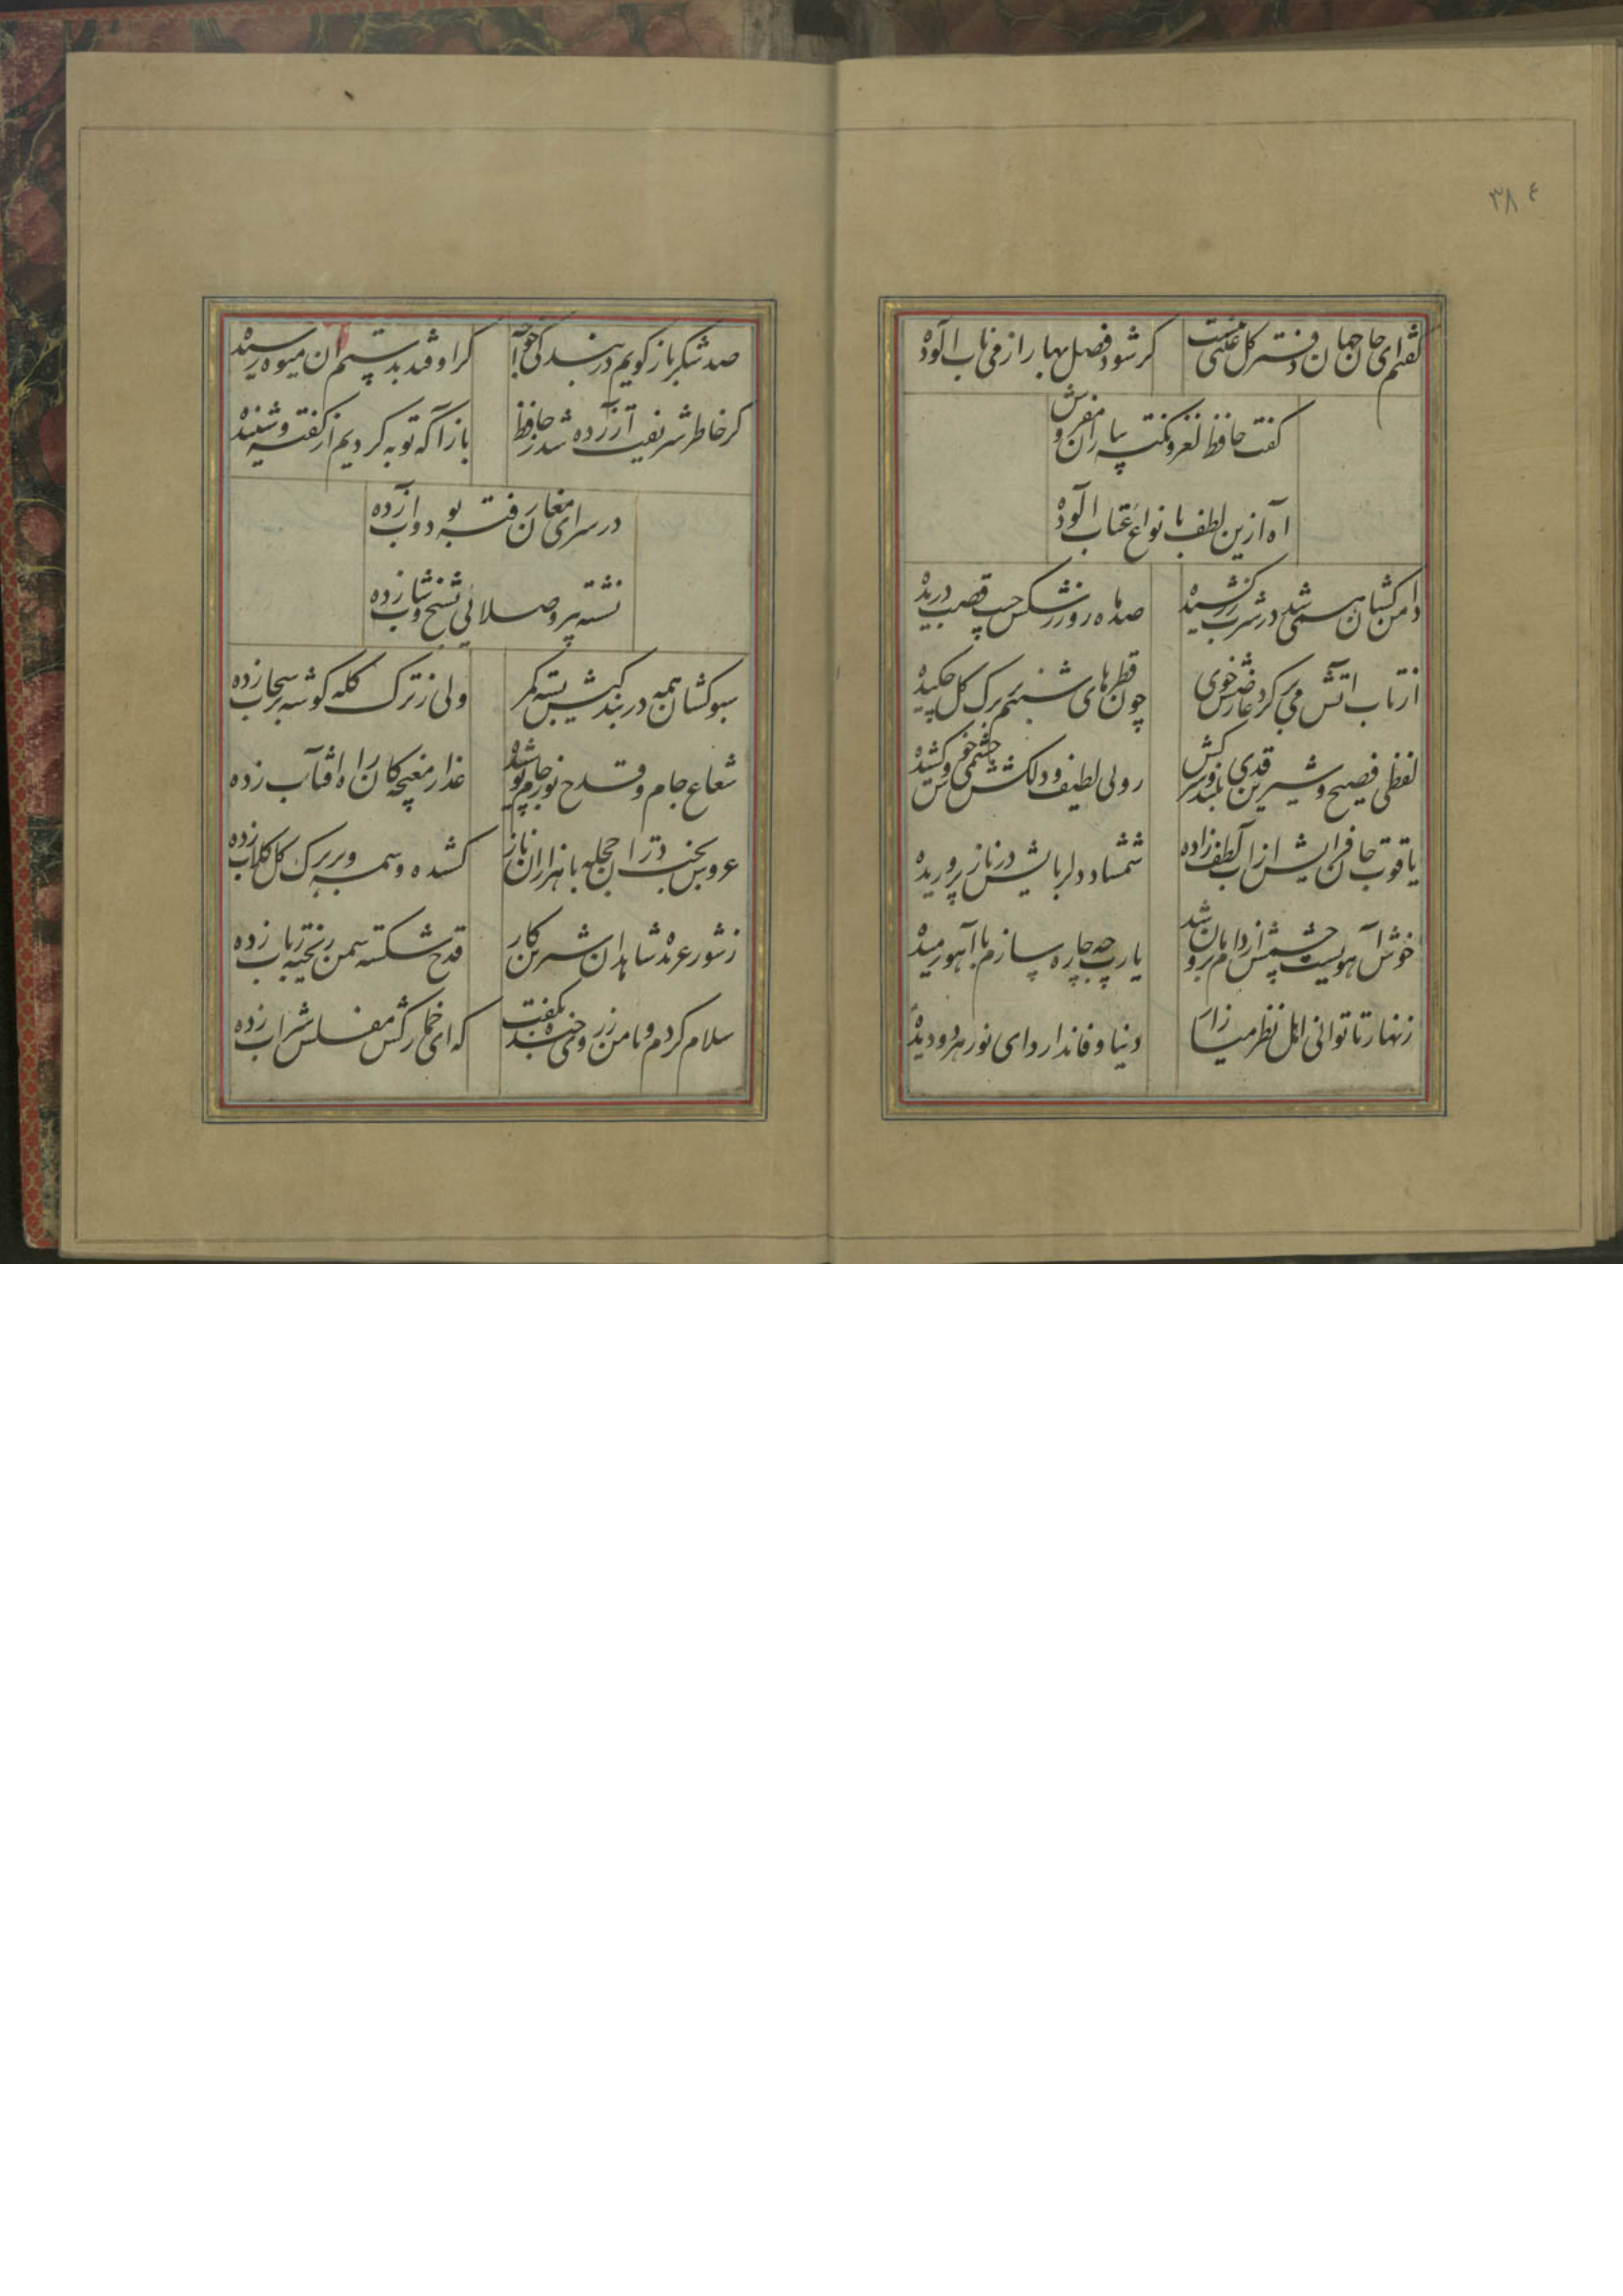 ۳۸٤
گفتم ای جان جهان دفتر گل عیبی نیست
کر شود فصل بهار از می ناب الوده
گفت حافظ لغز و نکته بیاران مفروش
اه ازین لطف با نواع عتاب الوده
دامن کشان همی شد در شرب زر کشیده
صد ماه رو ز رشکش جیب قصب دریده
از تاب اتش می بر کرد عارضش خوی
چون قطرهای شبنم بر برک کل چکیده
لفظی فصیح و شیرین قدی بلند و سرکش
رویی لطیف و دلکش چشمی خوش و کشیده
یاقوت جان فزایش از اب لطف زاده
شمشاد دلربایش در ناز پروریده
آن آهوی چشمش از دام ما برون شد
یا رب چه چاره سازم با آهو رمیده
زنهار تا توانی اهل نظر میازار
دنیا وفا ندارد ای نور هر دو دیده
صد شکر باز کویم در بندکی خواجه
کر اوفتد بدستم ان میوه رسیده
کر خاطر شریفت آزرده شد ز حافظ
باز آ که توبه کردیم از کفته و شنیده
در سرای مغان رفته بود و اب زده
نشسته پیر و صلائی بشیخ و شاب زده
سبو کشان همه در بندکیش بسته کمر
ولی ز ترک کله کوشه بر سحاب زده
شعاع جام و قدح نور ماه پوشیده
عذار مغبچکان راه افتاب زده
عروس بخت در ان حجله با هزاران ناز
کشیده وسمه و بر برک کل کلاب زده
ز شور عربده شاهدان شیرین کار
قدح شکسته سمن ریخته رباب زده
سلام کردم و با من بروی خندان گفت
که ای خمار کش مفلس شراب زده